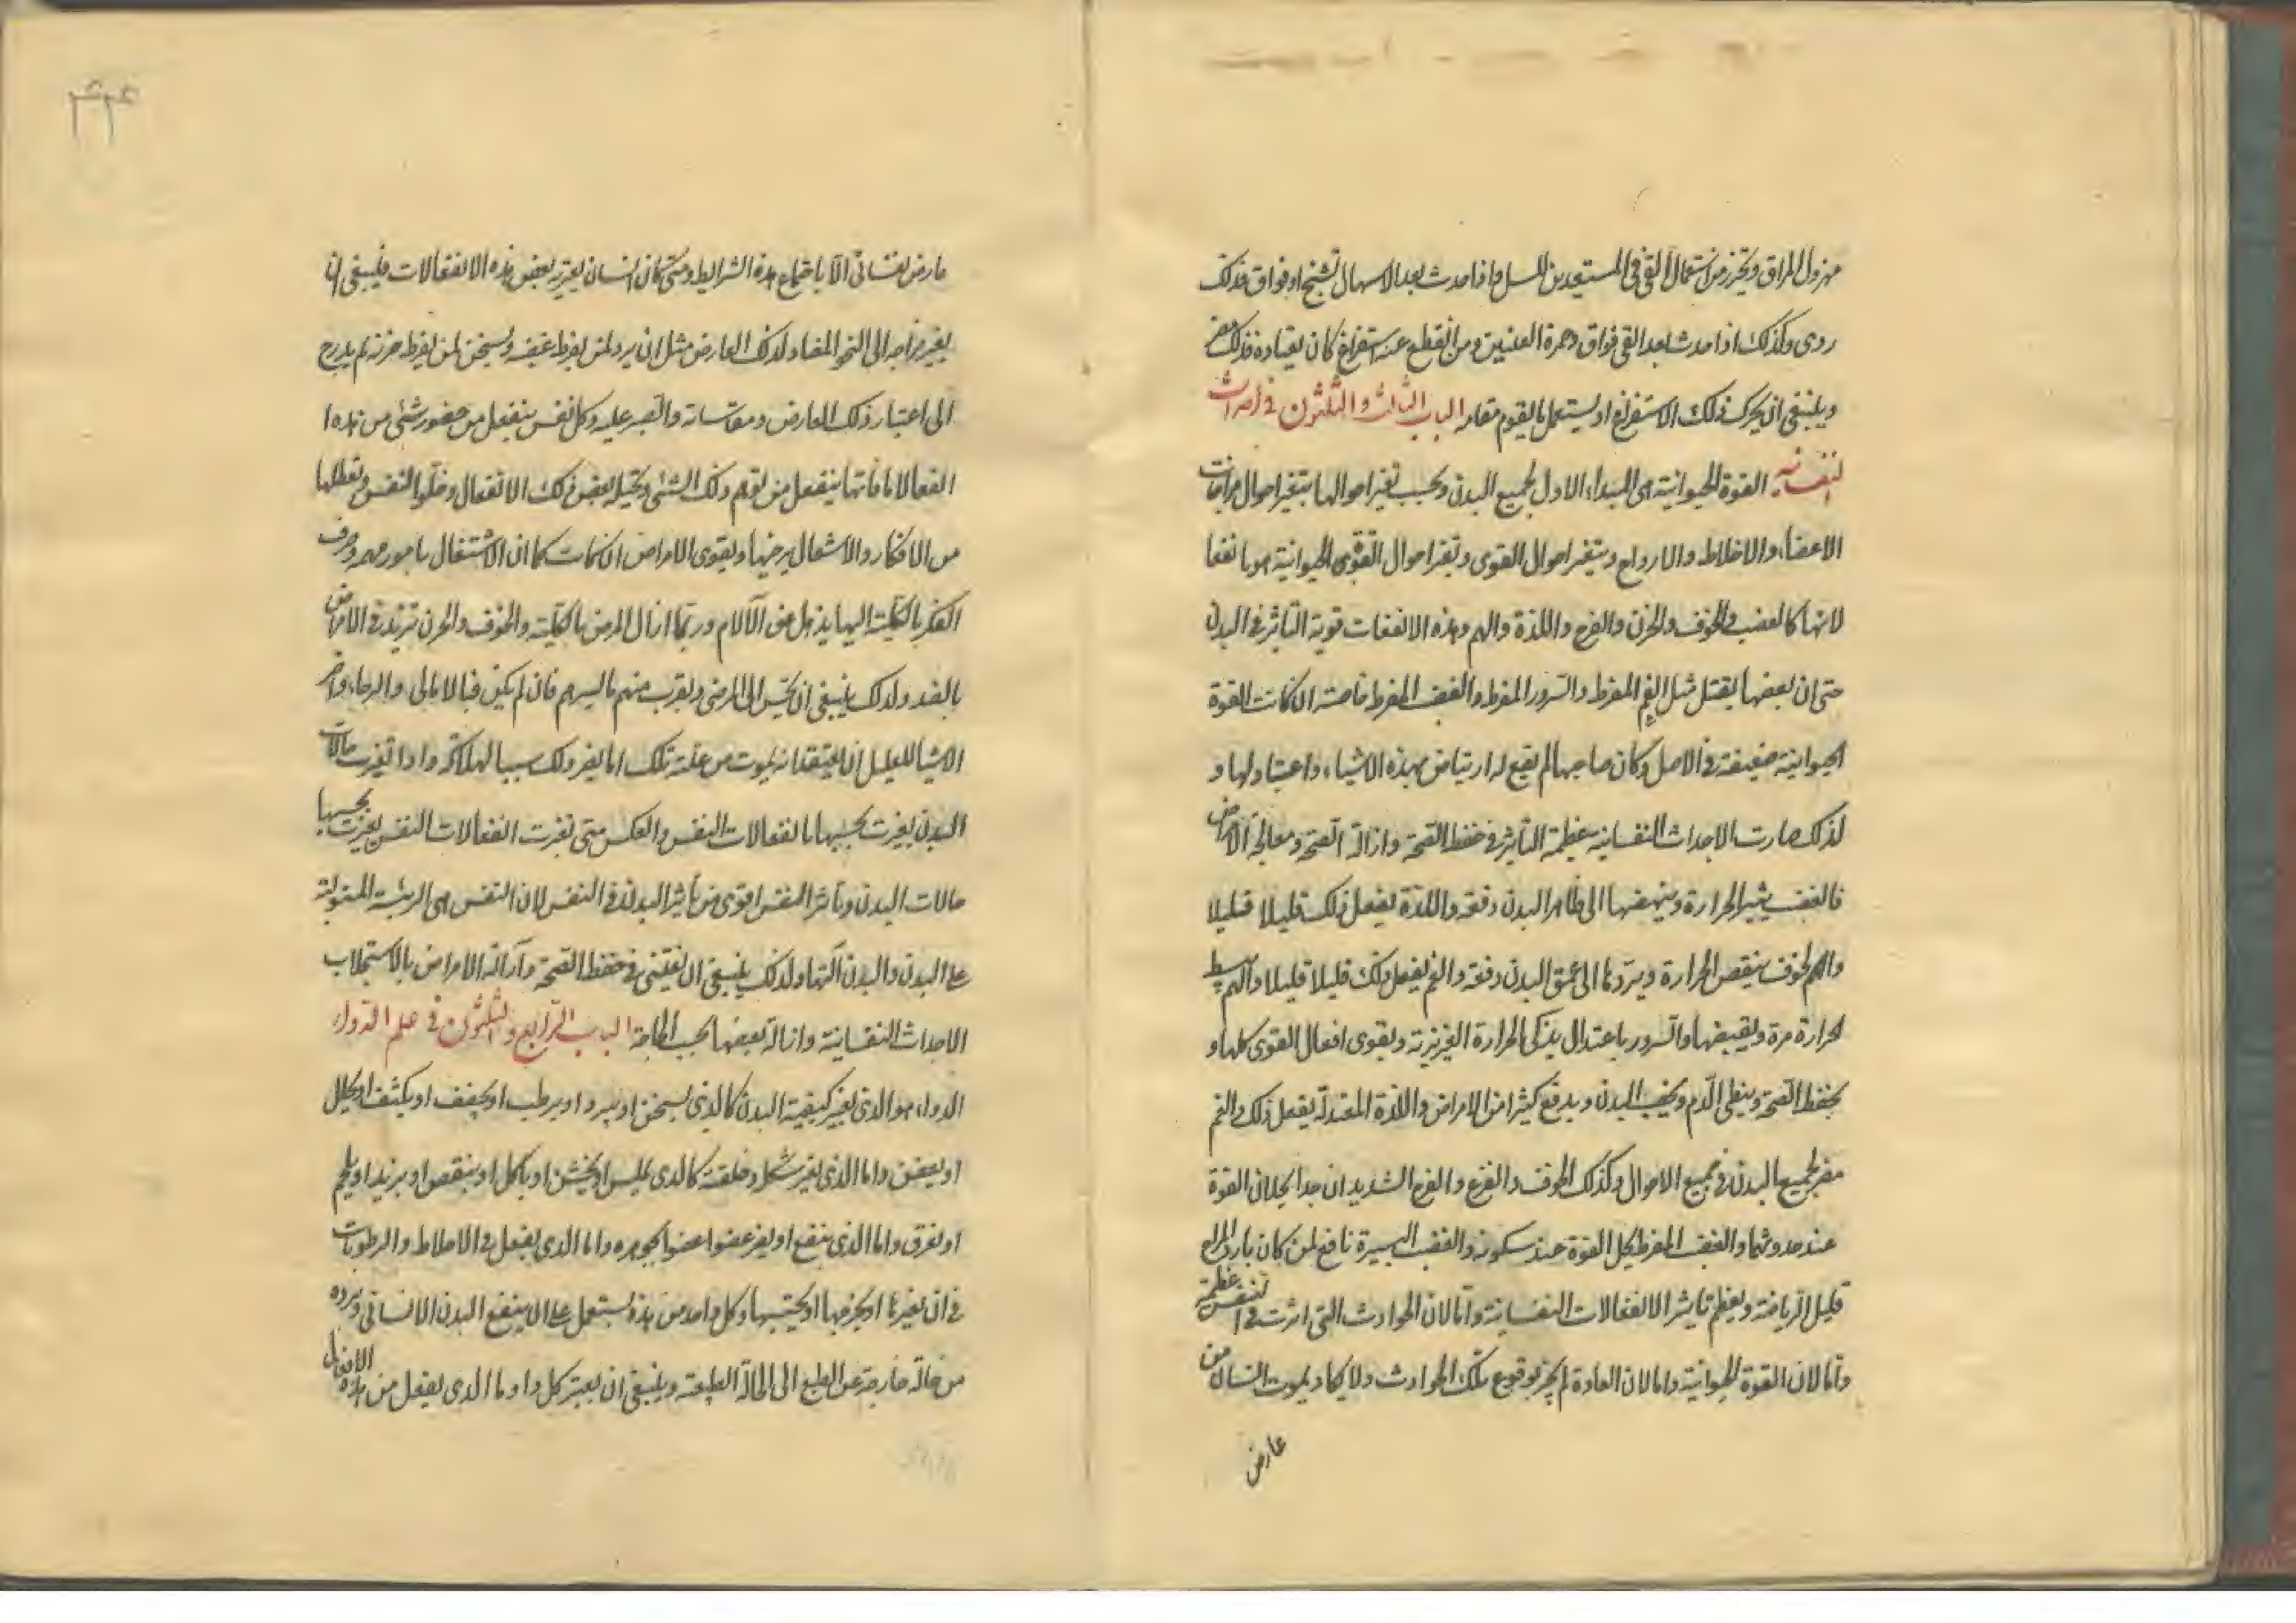 مهزول المراق ويحترز من استعمال القى فى المستعدين للسل واذا حدث بعد الاسهال تشنج او فواق فذلك
ردى وكذلك اذا حدث بعد القى فواق وحمرة العينين ومن انقطع عنه استفراغ كان يعتاده فذلك مضر
وينبغى ان يحرك ذلك الاستفراغ او يستعمل ما يقوم مقامه الباب الثالث والثلثون فى احداث
النفسانيه القوة الحيوانية هى المبداء الاول لجميع البدن وبحسب تغير احوالها يتغير احوال مزاجات
الاعضاء والاخلاط والارواح ويتغير احوال القوى وتغير احوال القوى الحيوانية هو بانفعا
لاتها كالغضب والخوف والحزن والفرح واللذة والهم وهذه الانفعات قوية التاثير فى البدن
حتى ان بعضها يقتل مثل الغم المفرط والسرور المفرط والغضب المفرط خاصة ان كانت القوة
الحيوانية ضعيفة فى الاصل وكان صاحبها لم يقع له ارتياض بهذه الاشياء واعتياد لها و
لذلك صارت الاحداث النفسانيه عظيمة التاثير فى حفظ الصحة وازالة الصحة ومعالجة الامراض
فالغضب يثير الحرارة وينهضها الى ظاهر البدن دفعة واللذة يفعل ذلك قليلا قليلا
والهم لخوف ينقص الحرارة ويردها الى عمق البدن دفعة والغم يفعل ذلك قليلا قليلا والهم يبسط
الحرارة مرة ويقبضها والسرور باعتدال يذكى الحرارة الغريزية ويقوى افعال القوى كلها و
يحفظ الصحة وينقى الدم ويخصب البدن ويدفع كثيرا من الامراض واللذة المعتدلة يفعل ذلك والغم
مضر لجميع البدن فى جميع الاحوال وكذلك الخوف والفزع والفرح الشديد ان جدا يحلان القوة
عند حدوثهما والغضب المفرط يحل القوة عند سكونه والغضب اليسيرة نافع لمن كان بارد المزاج
قليل الرياضة ويعظم تاثير الانفعالات النفسانية واما لان الحوادث التى اثرت فى النفس عظيمة
واما لان القوة الحيوانية واما لان العادة لم يجر بوقوع تلك الحوادث ولا يكاد يموت انسان من
عارض
عارض نفسانى الا باجتماع هذه الشرايط ومتى كان انسان يعتريه بعض هذه الانفعالات فينبغى ان
يغير مزاجه الى النحو المضاد لذلك العارض مثل ان يبرد لمن يفرط غضبه ويسخن لمن يفرط حزنه ثم يدرج
الى اعتبار ذلك العارض ومقاساته والصبر عليه وكل نفس ينفعل من حضور شئ من هذه ا
انفعالا ما فانها ينفعل من توهم ذلك الشئ وتخيله بعض ذلك الانفعال وخلو النفس وتعطلها
من الافكار والاشعال يرخيها ويقوى الامراض ان كانت كما ان الاشتغال بامور مهمه وصرف
الفكر بالكلية اليها يذهل عن الآلام وربما ازال المرض بالكلية والخوف والحزن تزيد فى الامراض
بالضد ولذلك ينبغى ان يحسن الى المرضى ويقرب منهم ما ليسرهم فان لم يكن فبالامالى والرجاء واضر
الاشيا للعليل ان يعتقد انه يموت من علته تلك اما يضر ذلك سببا لهلاكه واذا تغيرت حالات
البدن تغيرت بحسبها انفعالات النفس والعكس متى تغيرت انفعالات النفس تغيرت بحسبها
حالات البدن وتاثير النفس اقوى من تاثير البدن فى النفس لان النفس هى الرئيسة المتولية
على البدن والبدن آلتها ولذلك ينبغى ان يعتنى فى حفظ الصحة وازالة الامراض بالاستجلاب
الاحداث النفسانية وازالة بعضها بحسب الحاجة الباب الرابع والثلثون فى علم الدواء
الدواء هو الذى يغير كيفية البدن كالذى يسخن او يبرد او يرطب او يجفف او يكثف او يخلل
او يعفن واما الذى يغير شكل وخلقته كالذى يملس او يخشن او ياكل او ينقص او يزيد او يلحم
او يفرق واما الذى ينفع او يضر عضوا عضوا بجوهره واما الذى يفعل فى الاخلاط والرطوبات
فى ان يغيرها او يخرجها او يحتبسها وكل واحد من هذه يستعمل على ان ينفع البدن الانسانى ويرده
من حالة خارجة عن الطبع الى الحالة الطبيعة وينبغى ان يعتبر كل دا وما الذى يفعل من هذه الافعال